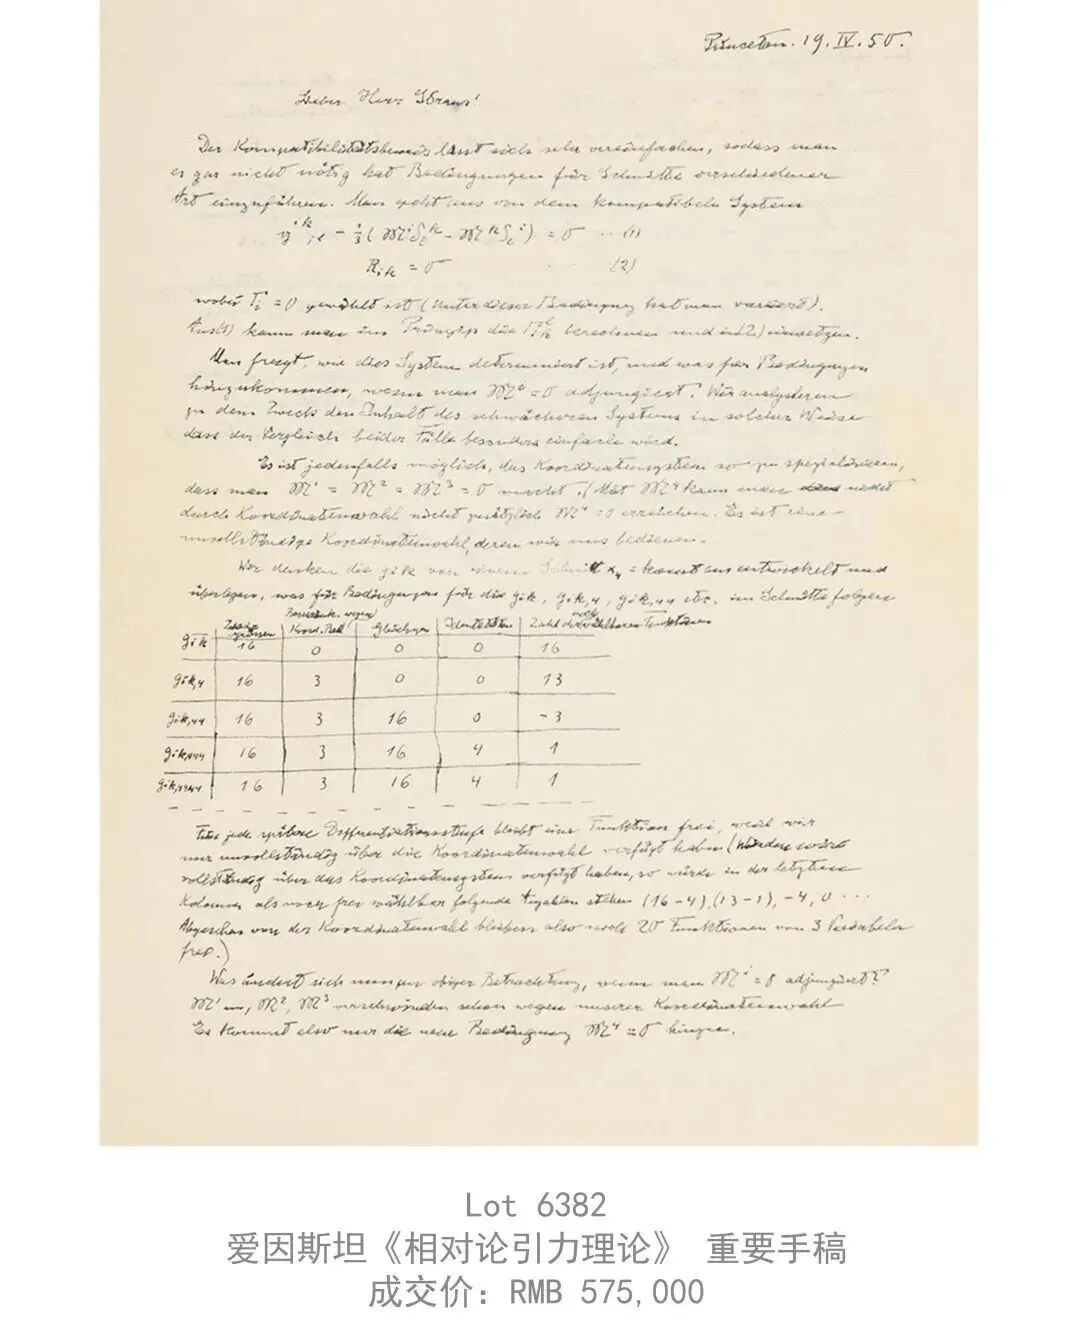 Princeton. 19. IV. 50.
Lieber Herr Straus!
Der Kompatibilitätsbeweis lässt sich sehr vereinfachen, sodass man
es gar nicht nötig hat Bedingungen für Schnitte verschiedener
Art einzuführen. Man geht aus von dem kompatibeln System
= 0 ... (1)
R_ik = 0 (2)
wobei Γ_i = 0 gewählt ist (Unter dieser Bedingung hat man variiert).
Aus (1) kann man im Prinzip die Γ berechnen und in (2) einsetzen.
Man fragt, wie dies System determiniert ist, und was für Bedingungen
hinzukommen, wenn man = 0 adjungiert. Wir analysieren
zu dem Zweck den Inhalt des schwächeren Systems in solcher Weise
dass der Vergleich beider Fälle besonders einfach wird.
Es ist jedenfalls möglich, das Koordinatensystem so zu spezialisieren,
dass man 𝔐¹ = 𝔐² = 𝔐³ = 0 macht. (Mit 𝔐⁴ kann man nicht
durch Koordinatenwahl nicht zusätzlich 𝔐⁴ = 0 erreichen. Es ist eine
unvollständige Koordinatenwahl, deren wir uns bedienen.
Wir denken die g_ik von einem Schnitt x₄ = konst aus entwickelt und
überlegen, was für Bedingungen für die g_ik, g_ik,4, g_ik,44 etc. im Schnitte folgen
Koord. Gleichungen Identitäten Zahl der noch wählbaren Funktionen
g_ik 16 0 0 0 16
g_ik,4 16 3 0 0 13
g_ik,44 16 3 16 0 -3
g_ik,444 16 3 16 4 1
g_ik,4444 16 3 16 4 1
Für jede spätere Differentiationsstufe bleibt eine Funktion frei, weil wir
nur unvollständig über die Koordinatenwahl verfügt haben (Würden wir
vollständig über das Koordinatensystem verfügt haben, so würde in der letzten
Kolumne als noch frei wählbar folgende Angaben stehen (16-4), (13-1), -4, 0 ...
Abgesehen von der Koordinatenwahl bleiben also noch 20 Funktionen von 3 Variabeln
frei.)
Was ändert sich nun an obiger Betrachtung, wenn man 𝔐ⁱ = 0 adjungiert?
𝔐¹, 𝔐², 𝔐³ verschwinden schon wegen unserer Koordinatenwahl
Es kommt also nur die neue Bedingung 𝔐⁴ = 0 hinzu.
Lot 6382
爱因斯坦《相对论引力理论》 重要手稿
成交价：RMB 575,000